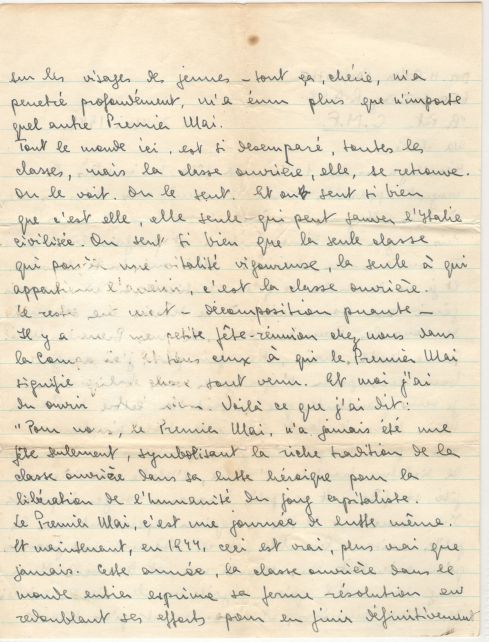 sur les visages de jeunes – tout ça, chérie, m'a
penetré profondément, m'a ému plus que n'importe
quel autre Premier Mai.
Tout le monde ici, est si desemparé, toutes les
classes, mais la classe ouvrière, elle, se retrouve.
On le voit. On le sent. Et on sent si bien
que c'est elle, elle seule qui peut sauver l'Italie
civilisée. On sent si bien que la seule classe
qui possède une vitalité vigoureuse, la seule à qui
appartient l'avenir, c'est la classe ouvrière.
Le reste est mort – décomposition puante –
Il y a une petite fête-réunion chez nous dans
la Et tous ceux à qui le Premier Mai
signifie quelque chose sont venu. Et moi j'ai
du ouvrir Voilà ce que j'ai dit:
"Pour nous, le Premier Mai, n'a jamais été une
fête seulement, symbolisant la riche tradition de la
classe ouvrière dans sa lutte héroïque pour la
libération de l'humanité du joug capitaliste.
Le Premier Mai, c'est une journée de lutte même.
Et maintenant, en 1944, ceci est vrai, plus vrai que
jamais. Cette année, la classe ouvrière dans le
monde entier exprime sa ferme résolution en
redoublant ses efforts pour en finir définitivement